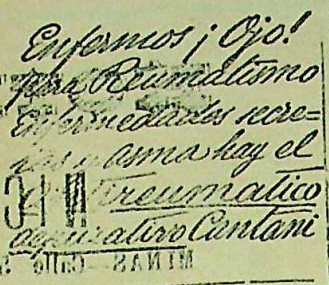 Enfermos ¡Ojo!
para Reumatismo
Enfermedades secre-
tas y asma hay el
Antireumatico
depurativo Cantani